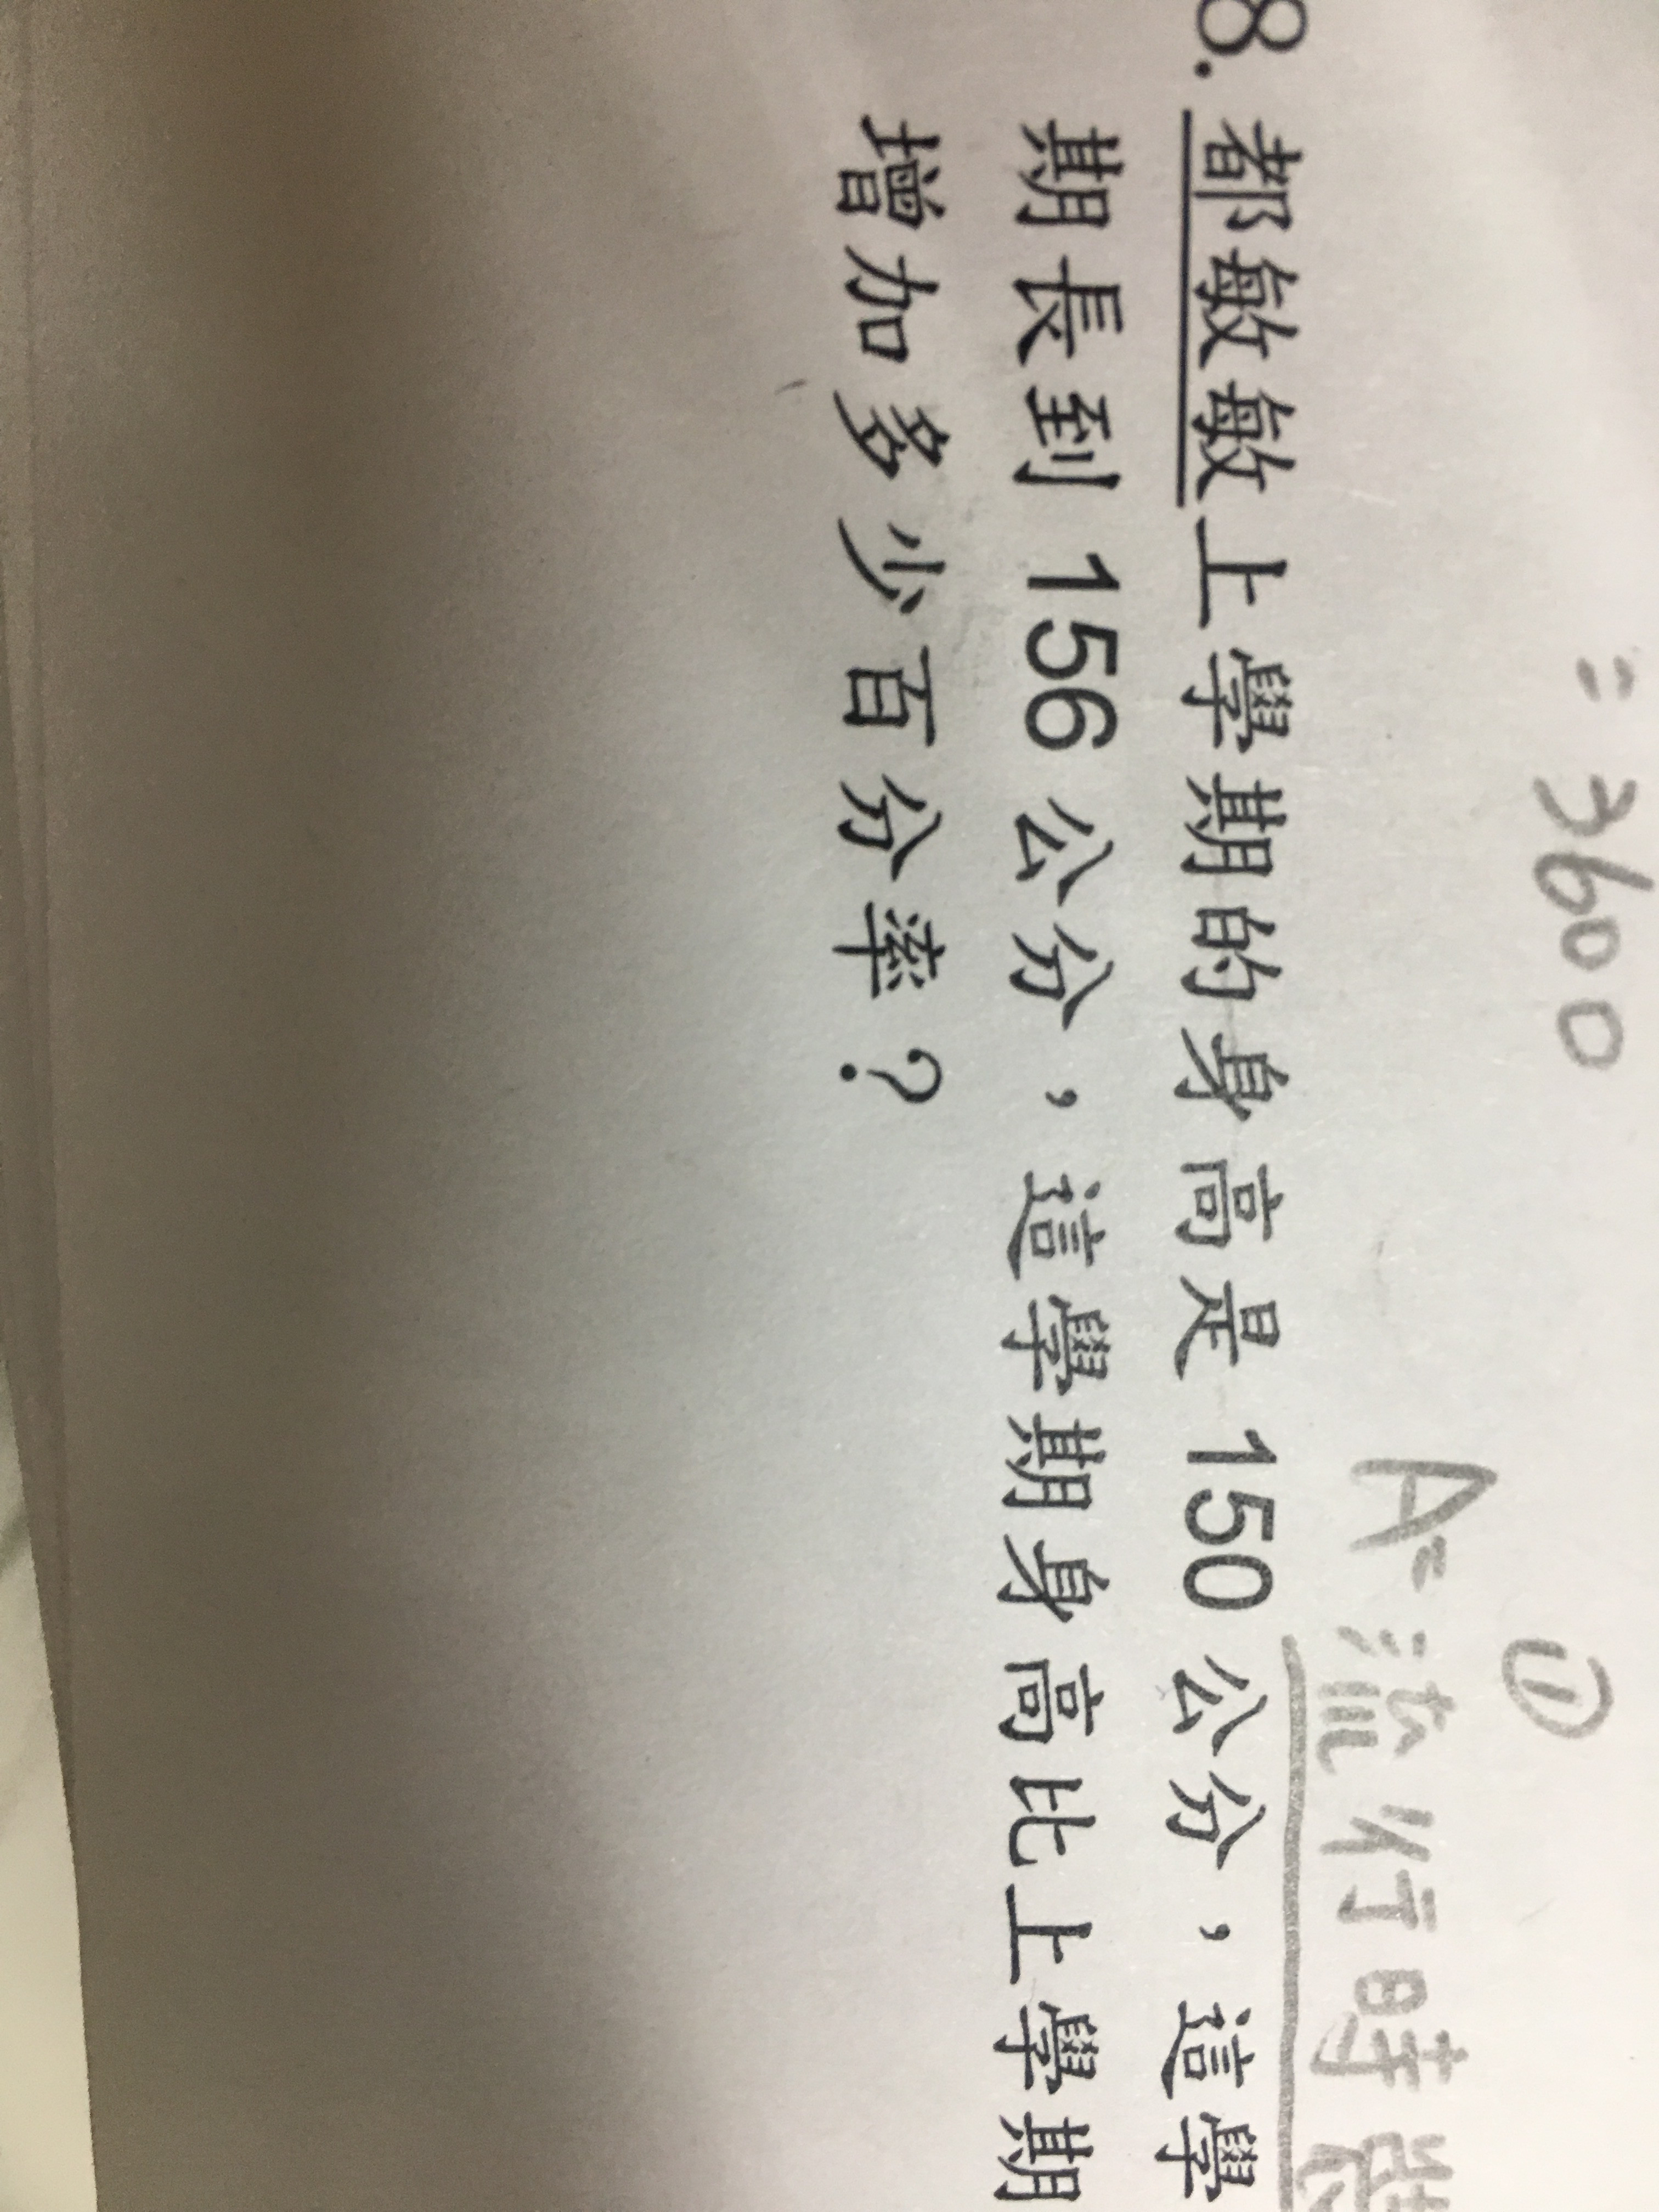 = 3600
①
A= 流行時裝
8. 都敏敏上學期的身高是 150 公分，這學
期長到 156 公分，這學期身高比上學期
增加多少百分率？